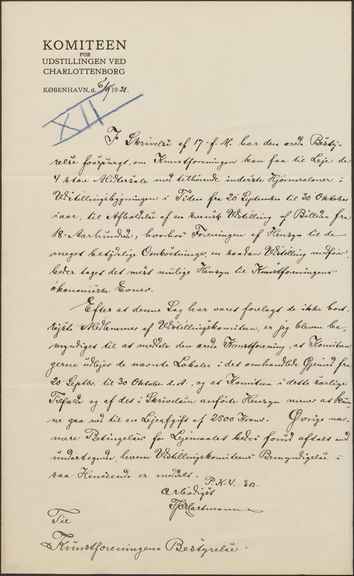 KOMITEEN
FOR
UDSTILLINGEN VED
CHARLOTTENBORG
KØBENHAVN, d. 6/9 19 21.
XII
I Skrivelse af 17. f. M. har den ærede Besty-
relse forespurgt, om Kunstforeningen kan faa til Leje de
4 store Midtersale med tilstødende inderste Hjørnesaloner i
Udstillingsbygningen i Tiden fra 20 September til 30 Oktober
i aar, til Afholdelse af en Udstilling af Billeder fra
18. Aarhundrede, hvorhos Foreningen af Hensyn til de
meget betydelige Omkostninger, en saadan Udstilling medfører,
beder taget det mest mulige Hensyn til Kunstforeningens
økonomiske Evner.
Efter at denne Sag har været forelagt de ikke bort-
rejste Medlemmer af Udstillingskomiteen, er jeg bleven be-
myndiget til at meddele den ærede Kunstforening, at Komiteen
gerne udlejer de nævnte Lokaler i det omhandlede Tidsrum fra
20 Septbr. til 30 Oktober d. A., og at Komiteen i dette særlige
Tilfælde og af det i Skrivelsen anførte Hensyn mener at kun-
ne gaa ned til en Lejeafgift af 2500 Kroner. Øvrige nær-
mere Betingelser for Lejemaalet bedes fund aftalt med
undertegnede, hvem Udstillingskomiteens Bemyndigelse i
saa Henseende er meddelt.
P. K. V.
Ærbødigst
Hartmann
Til
Kunstforeningens Bestyrelse.